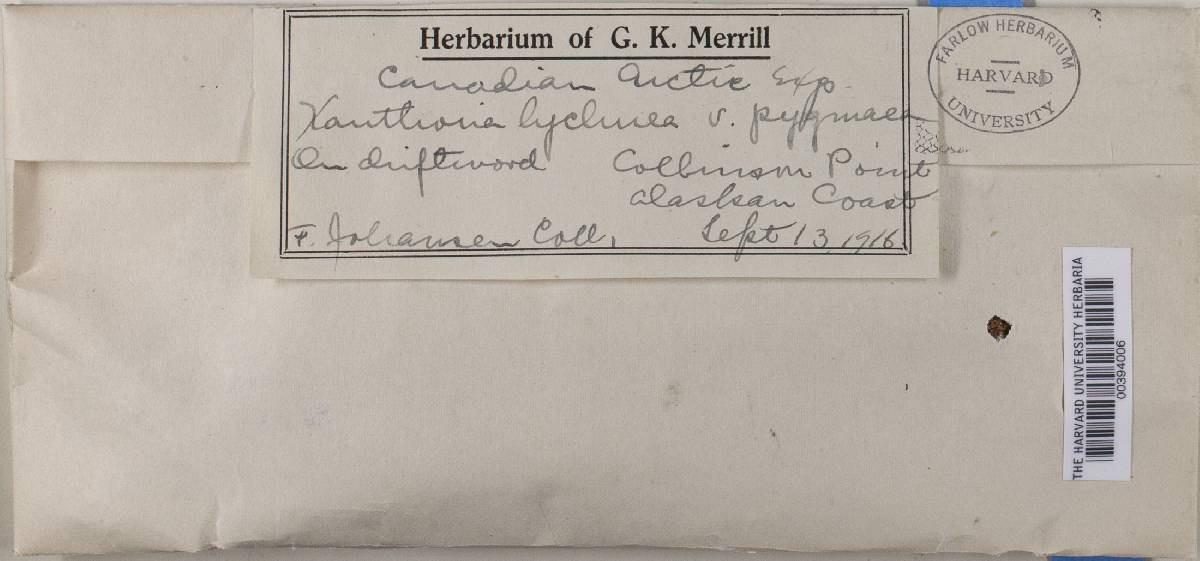 Herbarium of G. K. Merrill
Canadian Arctic Exp.
Xanthoria lychnea v. pygmaea
On driftwood Collinson Point
Alaskan Coast
F. Johansen Coll, Sept 13, 1916
FARLOW HERBARIUM
HARVARD
UNIVERSITY
THE HARVARD UNIVERSITY HERBARIA
00394006